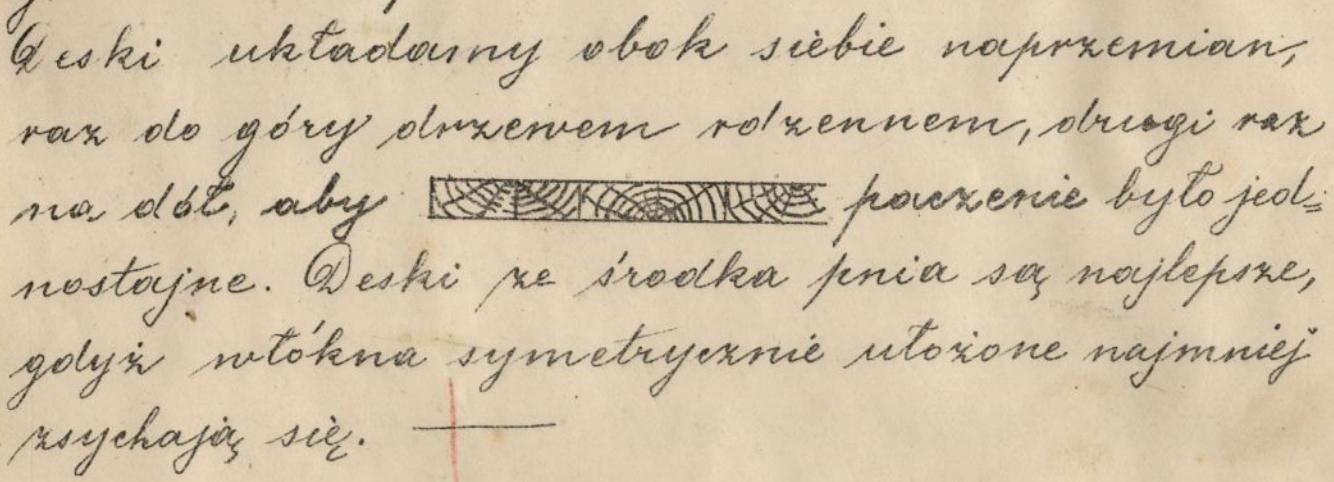 Deski układamy obok siebie naprzemian,
raz do góry drzewem rdzennem, drugi raz
na dół, aby paczenie było jed=
nostajne. Deski ze środka pnia są najlepsze,
gdyż włókna symetrycznie ułożone najmniej
zsychają się.